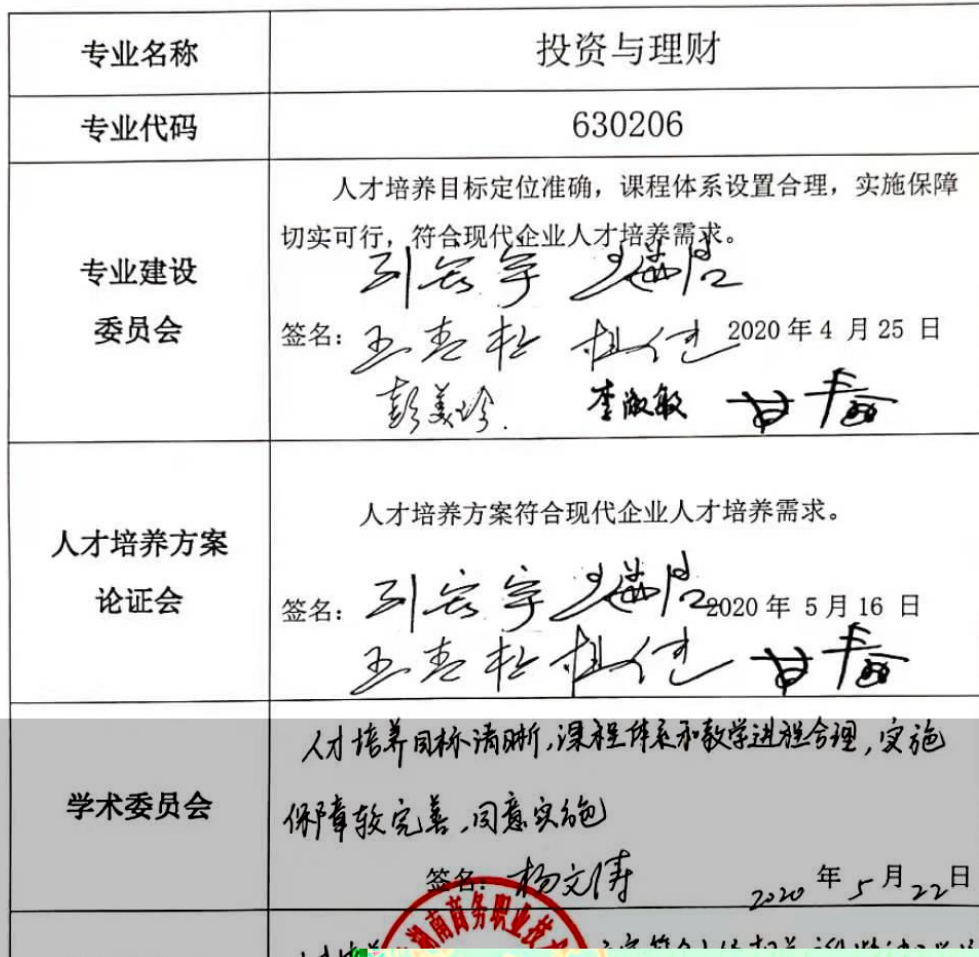 专业名称
投资与理财
专业代码
630206
专业建设
委员会
人才培养目标定位准确，课程体系设置合理，实施保障
切实可行，符合现代企业人才培养需求。
签名：
2020 年 4 月 25 日
彭美珍
李淑敏
人才培养方案
论证会
人才培养方案符合现代企业人才培养需求。
签名：
2020 年 5 月 16 日
学术委员会
人才培养目标清晰,课程体系和教学进程合理,实施
保障较完善,同意实施
签名：杨文涛
2020 年 5 月 22 日
湖南商务职业技术